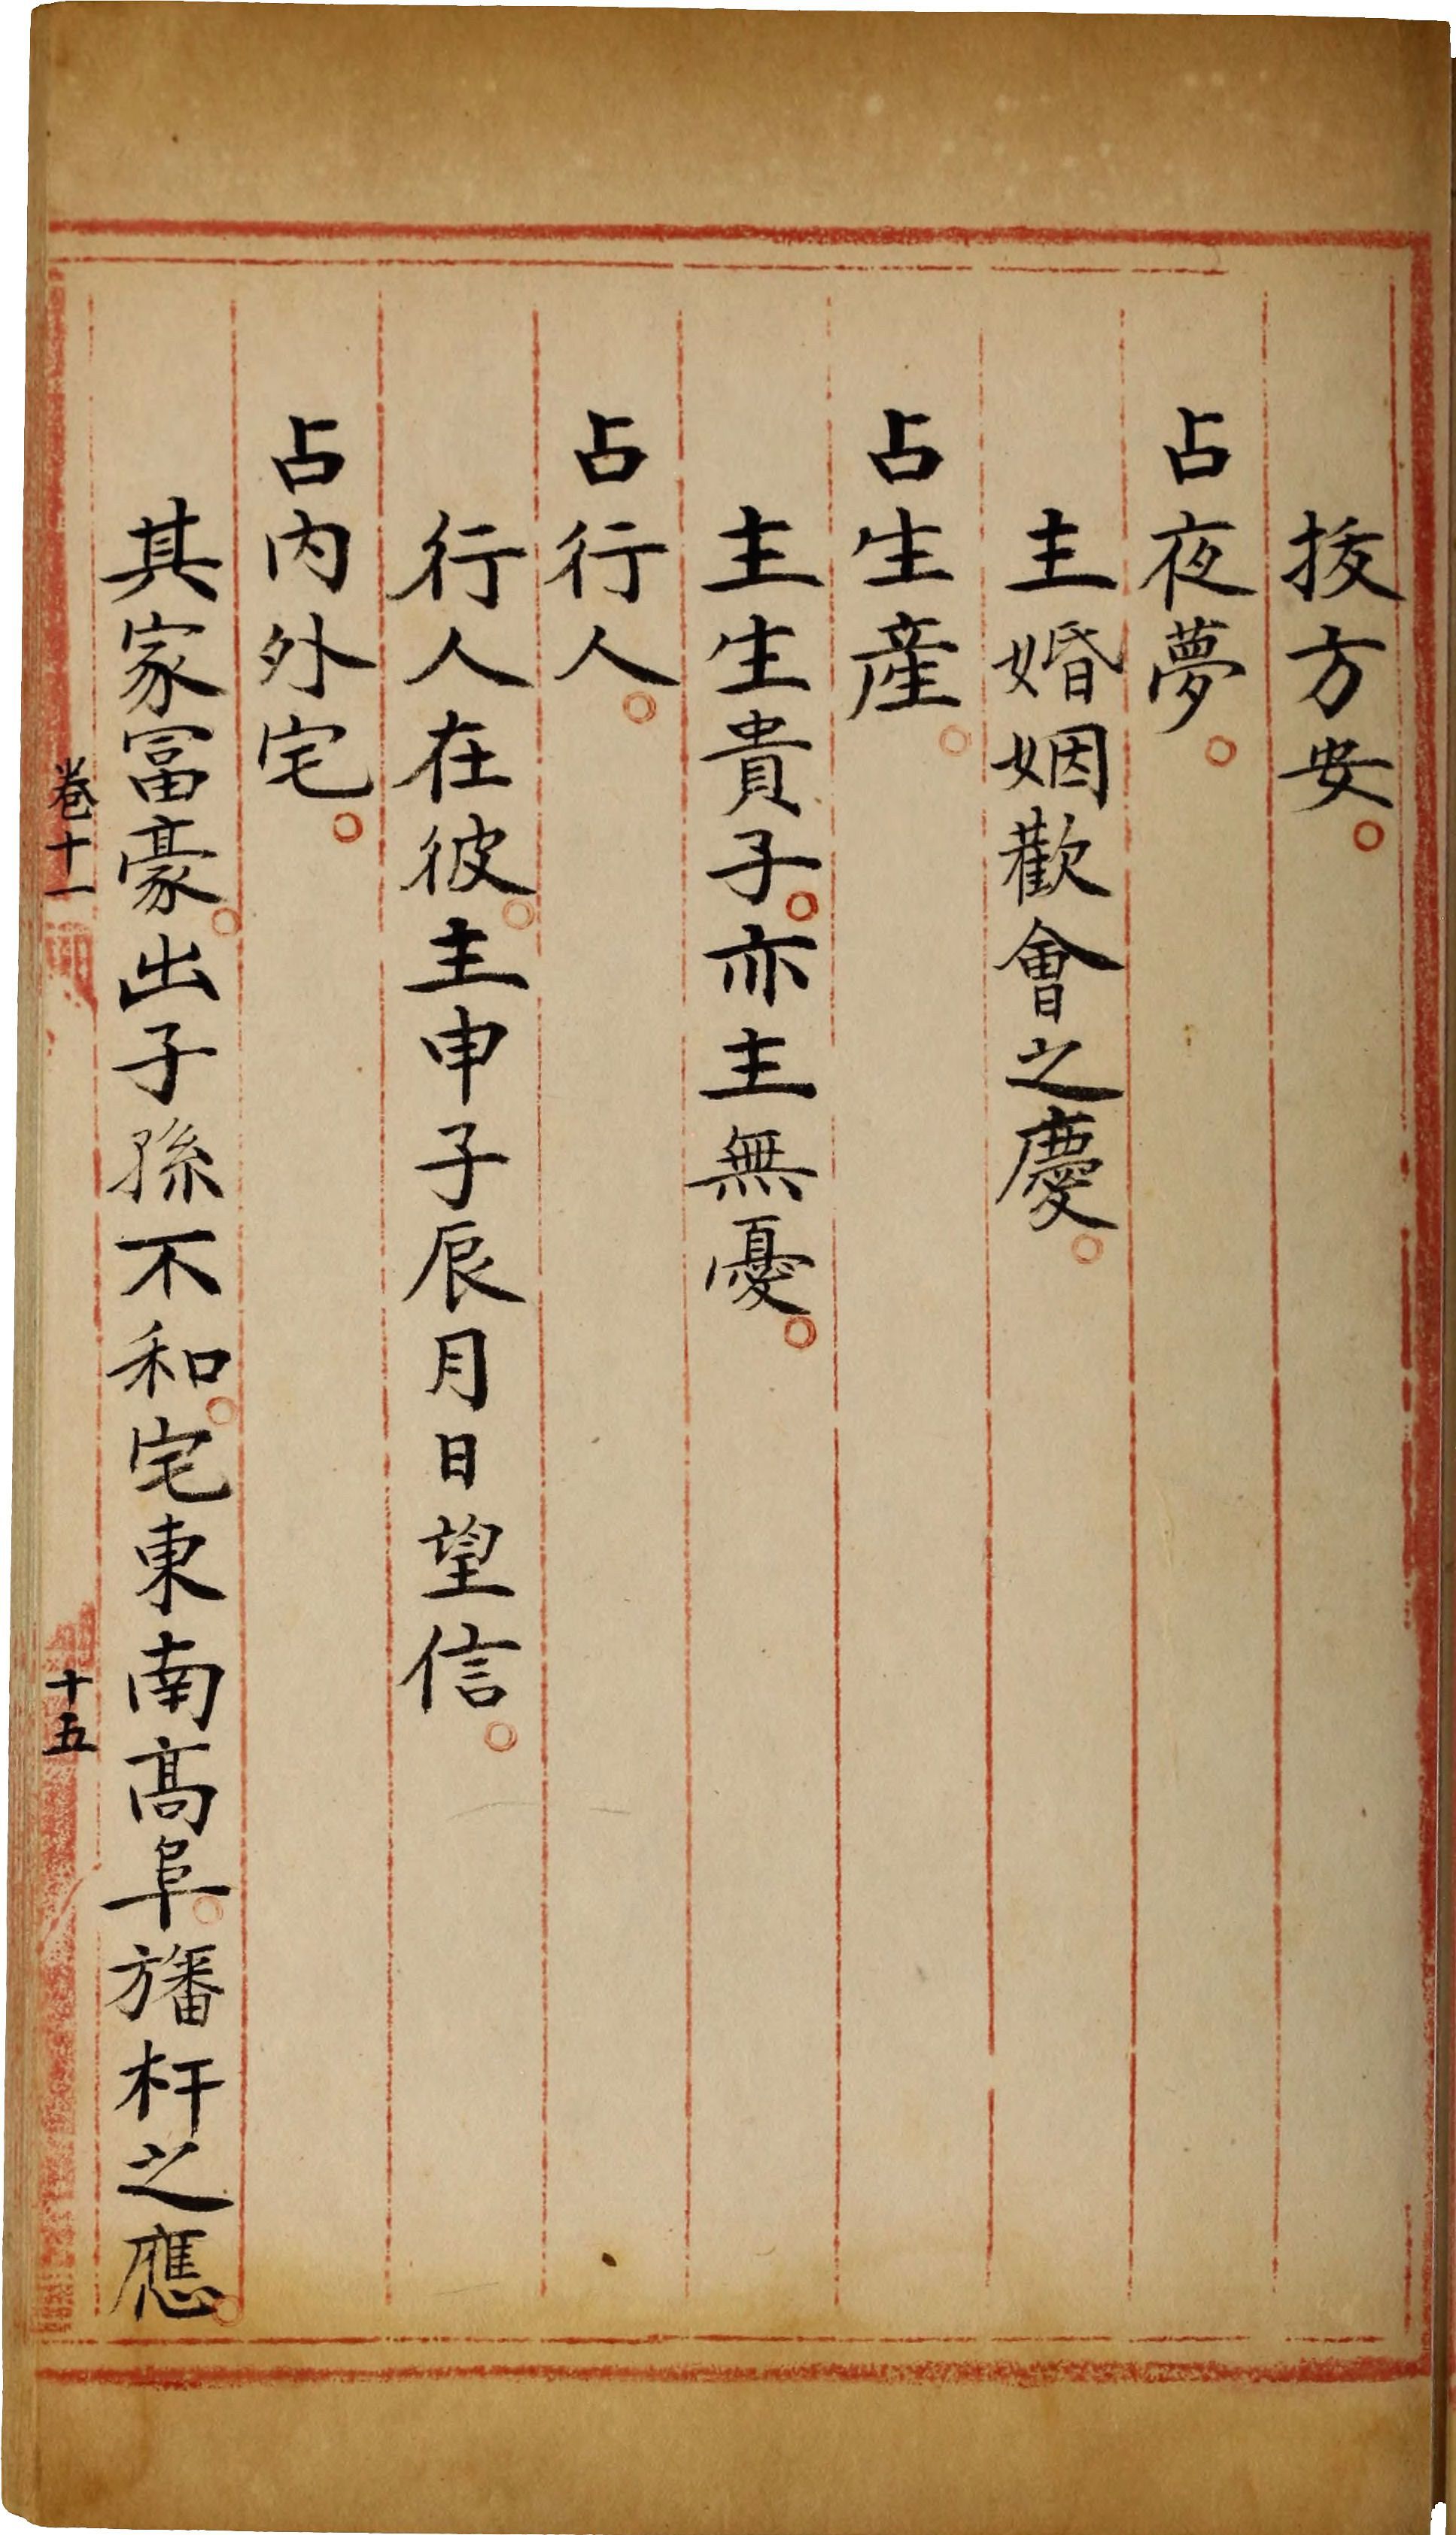 拔方安。
占夜夢。
主婚姻歡會之慶。
占生產。
主生貴子。亦主無憂。
占行人。
行人在彼。主申子辰月日望信。
占内外宅。
其家冨豪。出子孫不和。宅東南髙阜。旛杆之應。
卷十一
十五